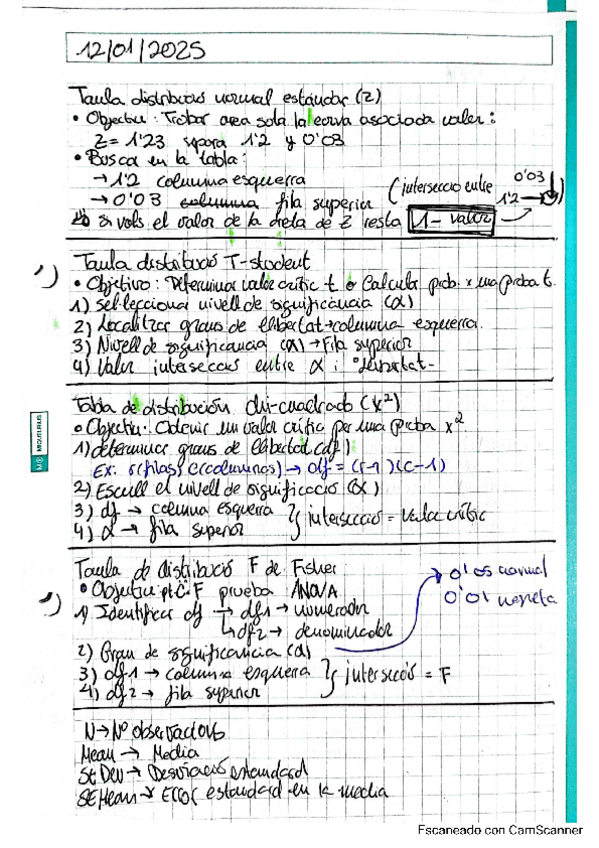 12/01/2025
Taula distribució normal estándar (z)
• Objectiu: Trobar area sota la corva asociada valer:
Z = 1'23 separa 1'2 y 0'03
• Busca en la tabla:
→ 1'2 columna esquerra
→ 0'03 columna fila superior (intersecció entre 1'2 → 0'03)
si vols el valor de la dreta de Z resta 1 - valor →
1) Taula distribució T-student
• Objetivo: Determinar valor crític t o Calcula prob. x una proba t.
1) Sel·lecciona nivell de significancia (α)
2) Localitzar graus de llibertat → columna esquerra.
3) Nivell de significancia (α) → Fila superior
4) Valor intersecció entre α i °llibertat-
Tabla de distribución chi-cuadrado (x²)
• Objectiu: Obtenir un valor crític per una proba x²
1) determinar graus de llibertat (df)
Ex: r(filas) c(columnas) → df = (r-1)(c-1)
2) Escull el nivell de significació (α)
3) df → columna esquerra
4) α → fila superior } intersecció = valor crític
Taula de distribució F de Fisher:
• Objectiu: pt C.F prueba ANOVA
1) Identificar df → df1 → numerador
↳ df2 → denominador
2) Grau de significancia (α) → 0'05 normal
0'01
3) df1 → columna esquerra
4) df2 → fila superior } intersecció = F
N → Nº observacions
Mean → Media
St Dev → Desviació estandard
SE Mean → Error estandard en la media
M MIQUELRIUS
Escaneado con CamScanner